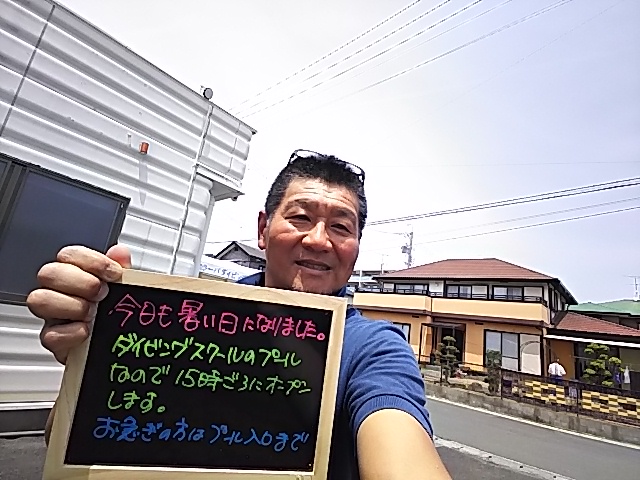 今日も暑い日になりました。
ダイビングスクールのプール
なので15時ごろにオープン
します。
お急ぎの方はプール入口まで